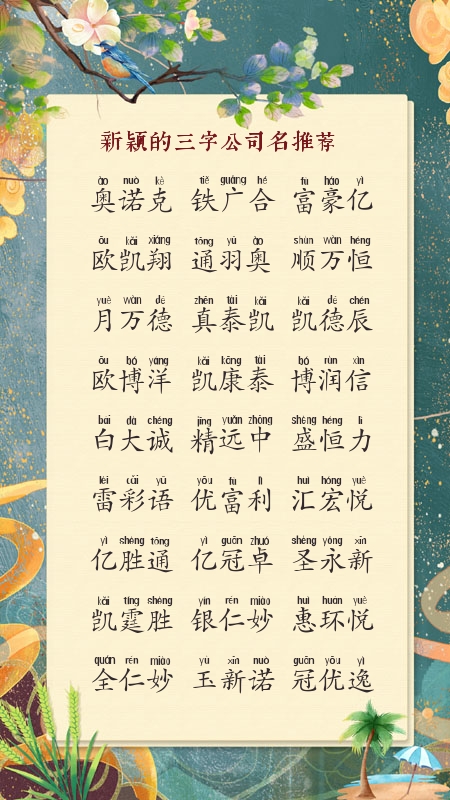 新颖的三字公司名推荐
ào nuò kè tiě guǎng hé fù háo yì
奥诺克 铁广合 富豪亿
ōu kǎi xiáng tōng yǔ ào shùn wàn héng
欧凯翔 通羽奥 顺万恒
yuè wàn dé zhēn tài kǎi kǎi dé chén
月万德 真泰凯 凯德辰
ōu bó yáng kǎi kāng tài bó rùn xìn
欧博洋 凯康泰 博润信
bái dà chéng jīng yuǎn zhōng shèng héng lì
白大诚 精远中 盛恒力
léi cǎi yǔ yōu fù lì huì hóng yuè
雷彩语 优富利 汇宏悦
yì shèng tōng yì guān zhuó shèng yǒng xīn
亿胜通 亿冠卓 圣永新
kǎi tíng shèng yín rén miào huì huán yuè
凯霆胜 银仁妙 惠环悦
quán rén miào yù xīn nuò guān yōu yì
全仁妙 玉新诺 冠优逸